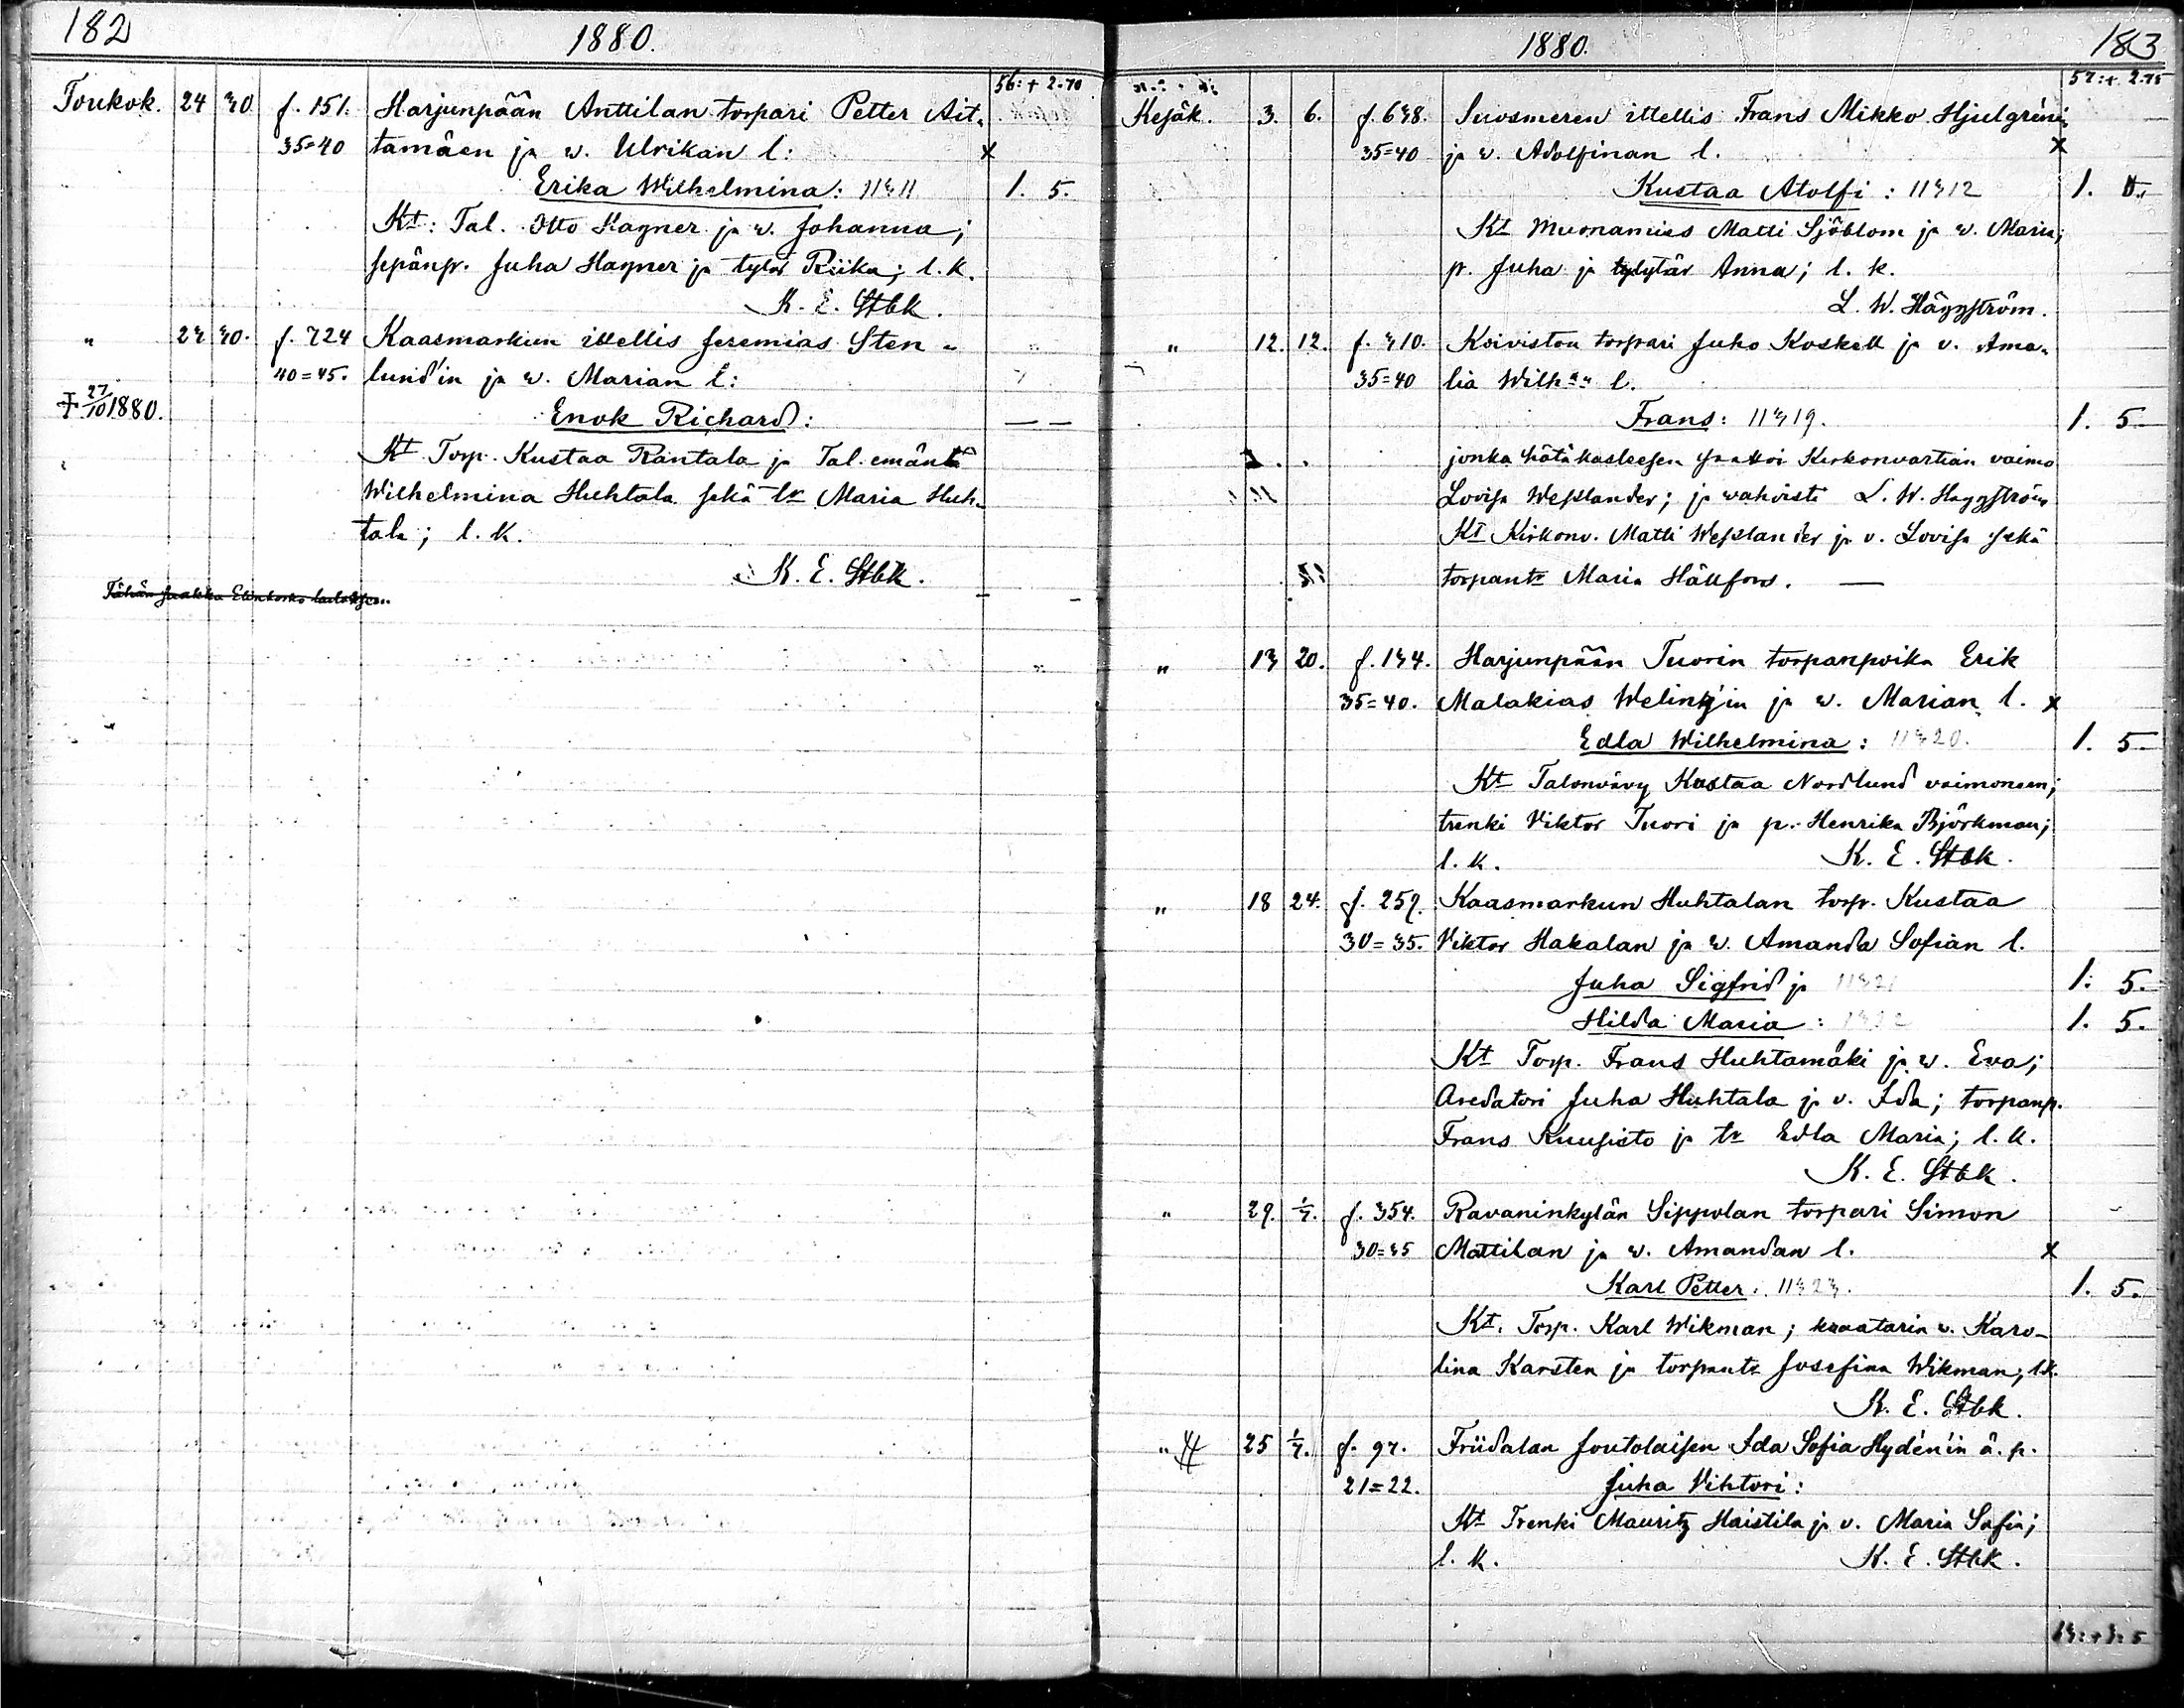 182
1880.
56:+ 2.70
Toukok. 24 30 f. 151. Harjunpään Anttilan torpari Petter Ait-
35=40 tamäen ja w. Ulrikan l: x
Erika Wilhelmina: 11311 1. 5.
Kt: Tal. Otto Hagner ja w. Johanna;
sepänp. Juha Hagner ja tytär Riika; l. k.
K. E. Stbk.
" 23 30. f. 724 Kaasmarkun itellis Jeremias Sten-
40=45. lund'in ja w. Marian l:
† 27/10 1880. Enok Richard: — —
Kt Torp. Kustaa Rantala ja Tal. emäntä
Wilhelmina Huhtala sekä tr Maria Huh-
tala; l. k.
K. E. Stbk.
Tähän
1880.
183
57:+ 2.75
Kesäk. 3. 6. f. 638. Suosmeren itellis Frans Mikko Hjulgrénin
35=40 ja w. Adolfinan l. x
Kustaa Atolfi: 11312 1. 5.
Kt Muonamies Matti Sjöblom ja w. Maria;
p. Juha ja tytär Anna; l. k.
L. W. Häggström.
" 12. 12. f. 310. Koiviston torpari Juho Koskell ja v. Ama-
35=40 lia Wilh:n l.
Frans: 11319. 1. 5.
jonka hätäkasteesen saattoi Kirkonvartian vaimo
Lovisa Wesslander; ja vahvisti L. W. Häggström
Kt Kirkonv. Matti Wesslander ja v. Lovisa sekä
torpantr Maria Hällfors. —
" 13 20. f. 134. Harjunpään Tuorin torpanpoika Erik
35=40. Malakias Welin'in ja w. Marian l. x
Edla Wilhelmina: 11320. 1. 5
Kt Talonvävy Kustaa Nordlund vaimoneen;
trenki Viktor Tuori ja p. Henrika Björkman;
l. k. K. E. Stbk.
" 18 24. f. 259. Kaasmarkun Huhtalan torp. Kustaa
30=35. Viktor Hakalan ja w. Amanda Sofian l.
Juha Sigfrid ja 11321 1. 5.
Hilda Maria: 1. 5.
Kt Torp. Frans Huhtamäki ja w. Eva;
Aredatori Juha Huhtala ja v. Ida; torpanp.
Frans Kuusisto ja tr Edla Maria; l. k.
K. E. Stbk.
" 29. 1/7. f. 354. Ravaninkylän Sippolan torpari Simon
30=35 Mattilan ja w. Amandan l. x
Karl Petter. 11323. 1. 5.
Kt. Torp. Karl Wikman; kraatarin v. Karo-
lina Karsten ja torpantr Josefina Wikman; l.k.
K. E. Stbk.
" 25 1/7. f. 97. Friidalan Joutolaisen Ida Sofia Hydén'in ä. p.
21=22. Juha Vihtori:
Kt Trenki Mauritz Haistila ja v. Maria Sofia;
l. k. K. E. Stbk.